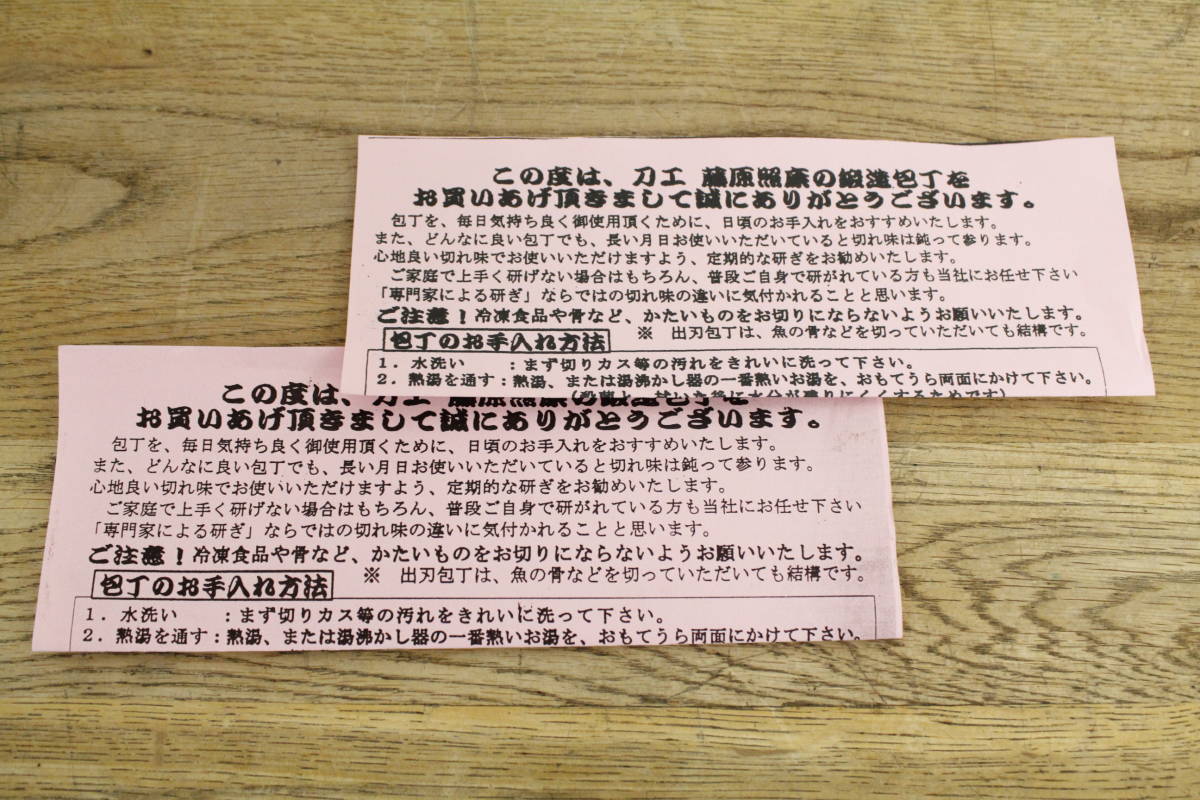 この度は、刀工 藤原照康の鍛造包丁を
お買いあげ頂きまして誠にありがとうございます。
包丁を、毎日気持ち良く御使用頂くために、日頃のお手入れをおすすめいたします。
また、どんなに良い包丁でも、長い月日お使いいただいていると切れ味は鈍って参ります。
心地良い切れ味でお使いいただけますよう、定期的な研ぎをお勧めいたします。
ご家庭で上手く研げない場合はもちろん、普段ご自身で研がれている方も当社にお任せ下さい
「専門家による研ぎ」ならではの切れ味の違いに気付かれることと思います。
ご注意!冷凍食品や骨など、かたいものをお切りにならないようお願いいたします。
※ 出刃包丁は、魚の骨などを切っていただいても結構です。
包丁のお手入れ方法
1．水洗い ：まず切りカス等の汚れをきれいに洗って下さい。
2．熱湯を通す：熱湯、または湯沸かし器の一番熱いお湯を、おもてうら両面にかけて下さい。
この度は、刀工 藤原照康の鍛造包丁を
お買いあげ頂きまして誠にありがとうございます。
包丁を、毎日気持ち良く御使用頂くために、日頃のお手入れをおすすめいたします。
また、どんなに良い包丁でも、長い月日お使いいただいていると切れ味は鈍って参ります。
心地良い切れ味でお使いいただけますよう、定期的な研ぎをお勧めいたします。
ご家庭で上手く研げない場合はもちろん、普段ご自身で研がれている方も当社にお任せ下さい
「専門家による研ぎ」ならではの切れ味の違いに気付かれることと思います。
ご注意!冷凍食品や骨など、かたいものをお切りにならないようお願いいたします。
※ 出刃包丁は、魚の骨などを切っていただいても結構です。
包丁のお手入れ方法
1．水洗い ：まず切りカス等の汚れをきれいに洗って下さい。
2．熱湯を通す：熱湯、または湯沸かし器の一番熱いお湯を、おもてうら両面にかけて下さい。